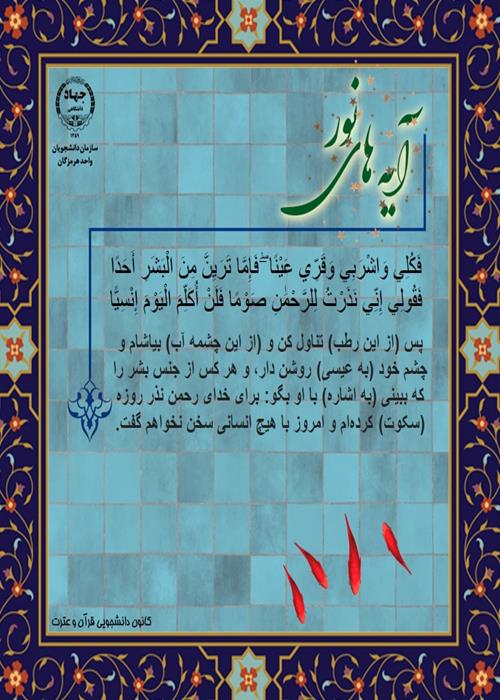 جهاد
دانشگاهی
۱۳۵۹
سازمان دانشجویان
واحد هرمزگان
آیه های نور
فَكُلِي وَاشْرَبِي وَقَرِّي عَيْنًا ۖ فَإِمَّا تَرَيِنَّ مِنَ الْبَشَرِ أَحَدًا
فَقُولِي إِنِّي نَذَرْتُ لِلرَّحْمَٰنِ صَوْمًا فَلَنْ أُكَلِّمَ الْيَوْمَ إِنْسِيًّا
پس (از این رطب) تناول کن و (از این چشمه آب) بیاشام و
چشم خود (به عیسی) روشن دار، و هر کس از جنس بشر را
که ببینی (به اشاره) با او بگو: برای خدای رحمن نذر روزه
(سکوت) کرده‌ام و امروز با هیچ انسانی سخن نخواهم گفت.
کانون دانشجویی قرآن و عترت